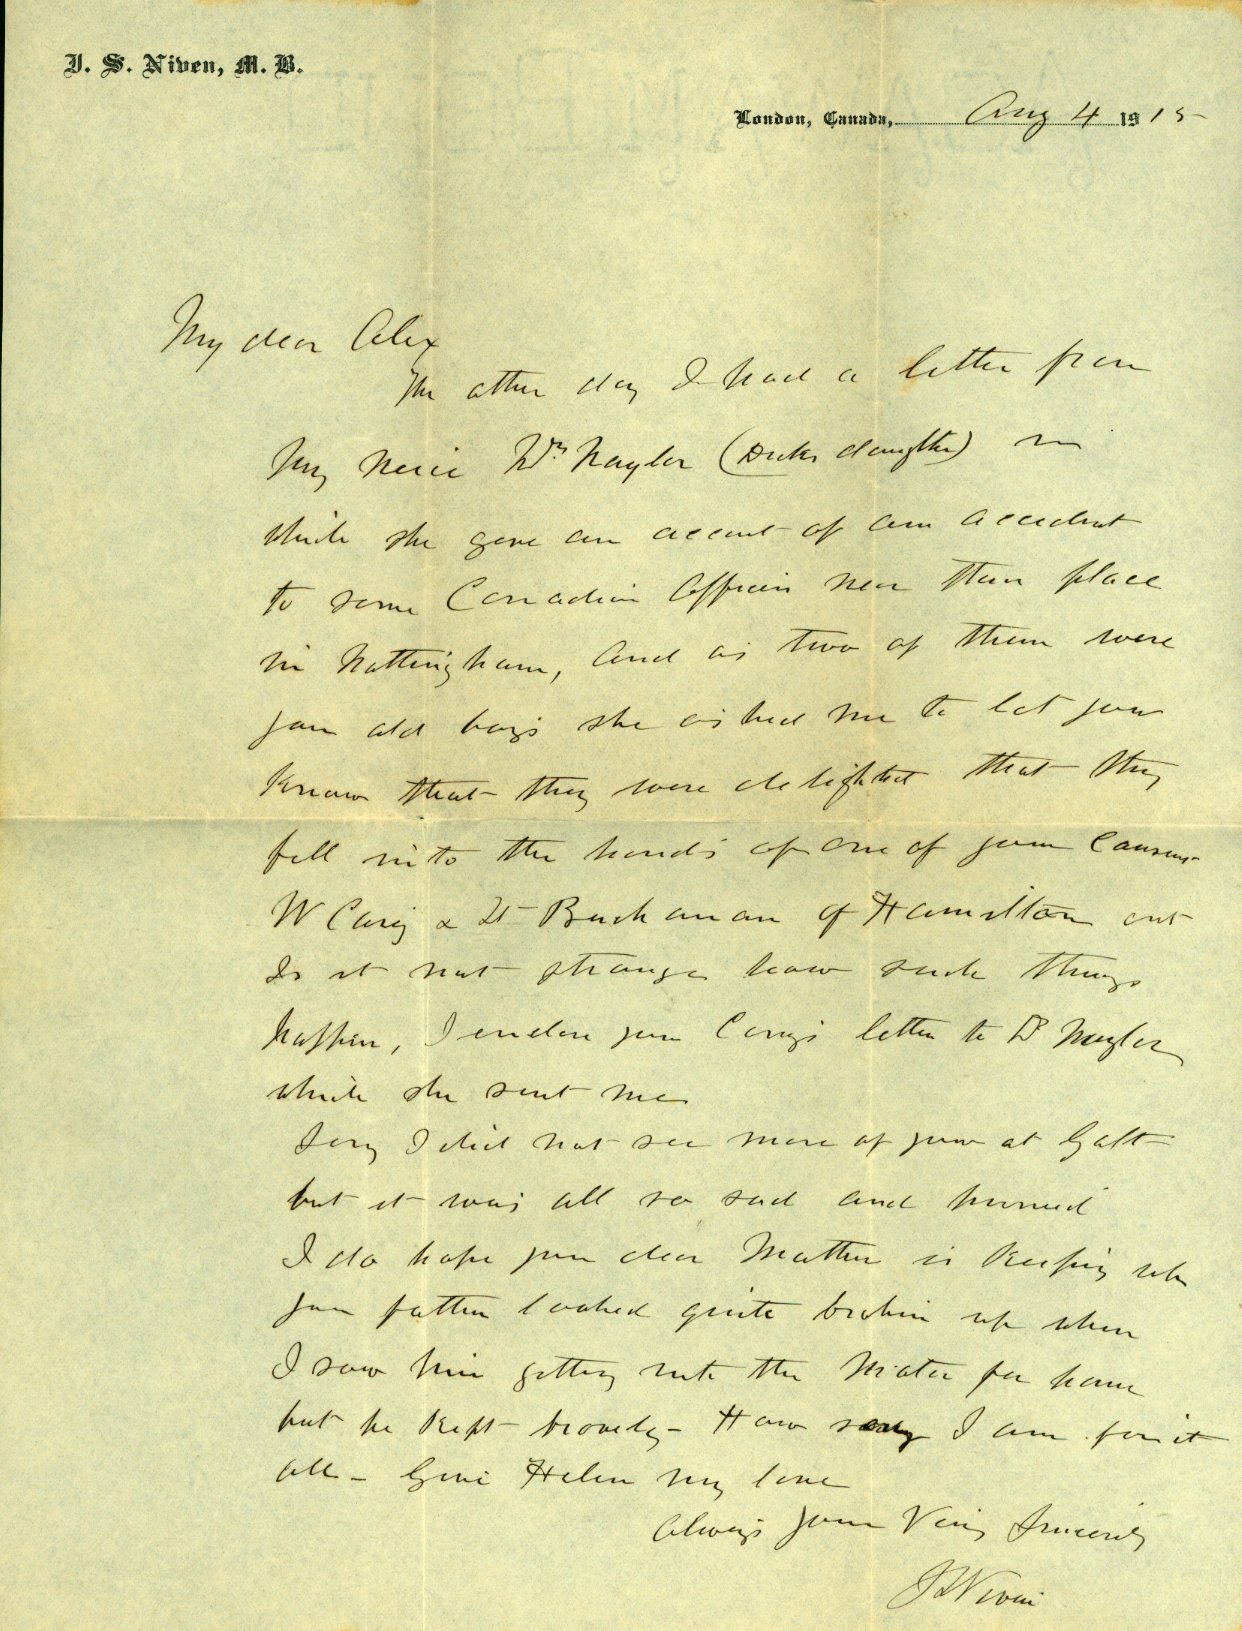 J. S. Niven, M. B.
London, Canada, Aug 4 1915
My dear Alex
The other day I had a letter from
my neice Naylor (Dicks daughter) in
which she gave an account of an accident
to some Canadian Officers near their place
in Nottingham, and as two of them were
your old boys she asked me to let you
know that they were delighted that they
fell into the hands of one of your
W Carey & Lt Buchanan of Hamilton ont
Is it not strange how such things
happen, I enclose you Careys letter to Dr Naylor
which she sent me
Sorry I did not see more of you at Galt
but it was all so sad and hurried
I do hope your dear Mother is keeping
your father looked quite broken up when
I saw him getting into the Motor for home
but he kept bravely - How sorry I am for it
all - Give Helen my love
Always yours Very Sincerely
J S Niven